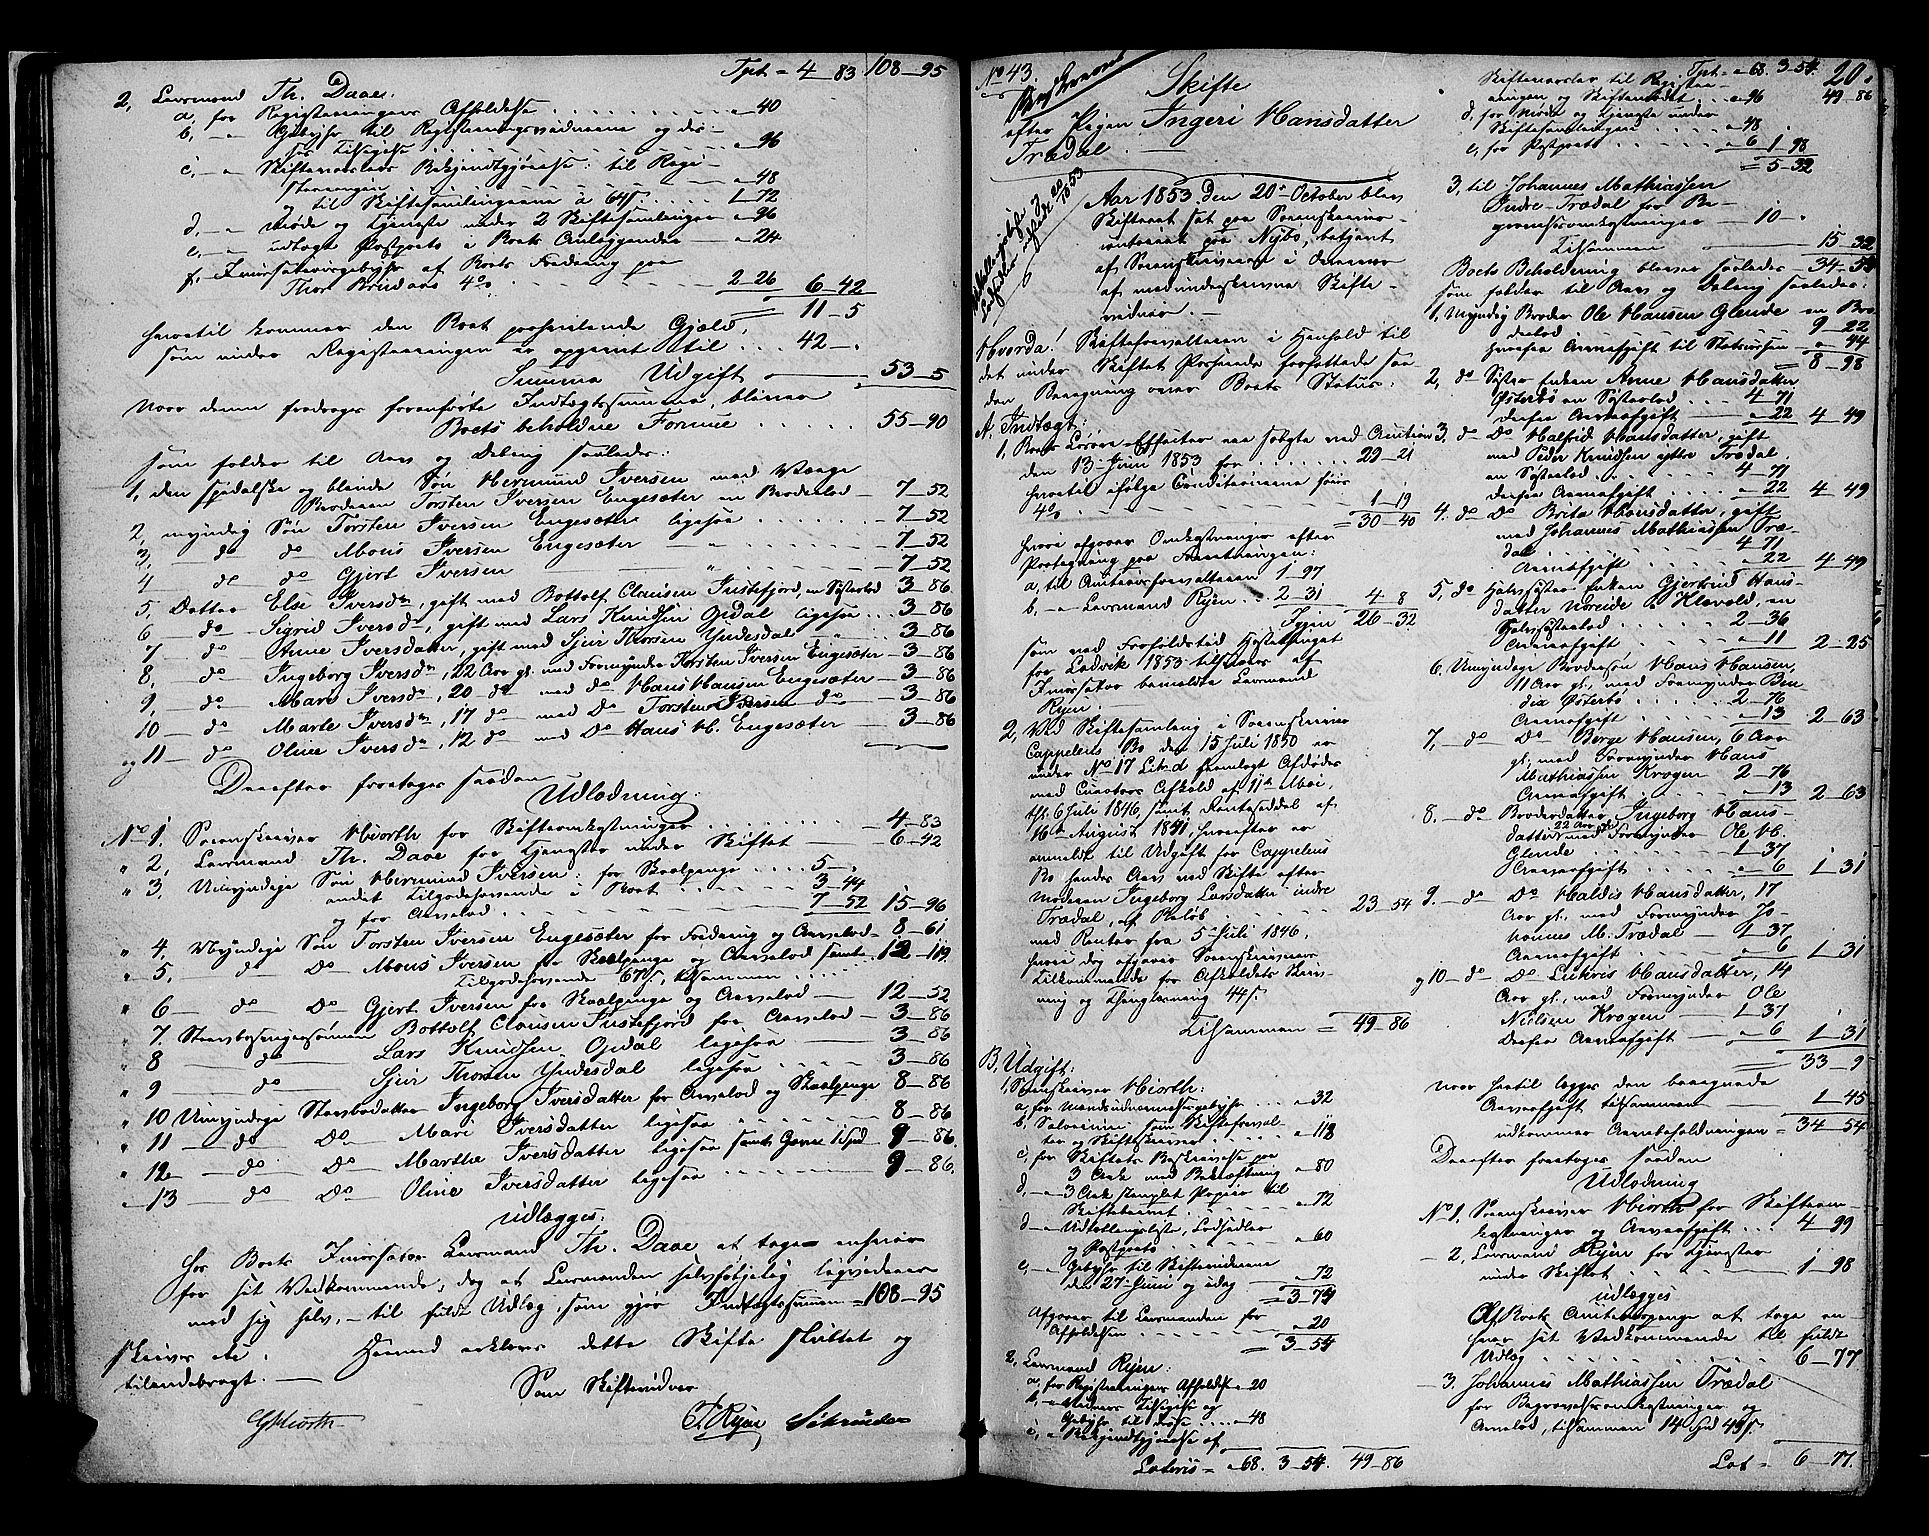 Tpt = 4_83 108_95
2, Lensmand Th. Daae:
a, for Registreringens Afholdelse - 40
b, - Gebyhr til Registreringsvidnerne og de-
res Tilsigelse - 96
c, - Skiftevarslers Bekjendtgjørelse: til Regi-
streringen - 48
og til Skiftesamlingerne à 64 s. 1_72
d, - Møde og Tjeneste under 2 Skiftesamlinger - 96
e, - udlagt Postporto i Boets Anliggender - 24
f, Incassationsgebyhr af Boets Fordring paa
Thor Brudaas 4% 2_26 6_42
11_5
hvortil kommer den Boet paahvilende Gjæld,
som under Registreringen er opgivet til 42_"
Summa Udgift 53_5
Naar denne fradrages foranførte Indtægtssumma, bliver
Boets beholdne Formue 55_90
som falder til Arv og Deling saaledes:
1, den spedalske og blinde Søn Hermund Iversen med Værge
Broderen Torsten Iversen Engesæter en Broderlod - 7_52
2, myndig Søn Torsten Iversen Engesæter ligesaa - 7_52
3, do do Mons Iversen Engesæter - " - 7_52
4 do do Gjert Iversen - " - 7_52
5, Datter Else Iversdr, gift med Bottolf Clausen Justefjord, en Søsterlod 3_86
6 do Sigrid Iversdr, gift med Lars Knudsen Opdal ligesaa 3_86
7 do Anne Iversdatter, gift med Sjur Thorsen Yndesdal " 3_86
8, do Ingeborg Iversdr, 22 Aar gl. med Formynder Torsten Iversen Engesæter - 3_86
9, do Mari Iversdr, 20 do med do Hans Hansen Engesæter - 3_86
10 do Marte Iversdr, 17 do med Do Torsten Iversen do - 3_86
og 11 do Oline Iversdr, 12 do med Do Hans H. Engesæter - 3_86
Derefter foretoges saadan
Udlodning:
No 1. Sorenskriver Hiorth for Skifteomkostninger 4_83
" 2, Lensmand Th. Daae for Tjenester under Skiftet 6_42
" 3, Umyndige Søn Hermund Iversen: for Skoelpenge 5_"
andet Tilgodehavende i Boet 3_44
og for Arvelod 7_52 15_96
" 4, Myndige Søn Torsten Iversen Engesæter for Fordring og Arvelod 8_61
" 5, do Do Mons Iversen for Skoelpenge og Arvelod samt
Tilgodehavende 67 s., tilsammen 12_119
" 6 do Do Gjert Iversen for Skoelpenge og Arvelod 12_52
" 7. Stervboesvigersønnen Bottolf Clausen Justefjord for Arvelod 3_86
" 8 do Lars Knudsen Opdal ligesaa 3_86
" 9 do Sjur Thorsen Yndesdal ligesaa 3_86
" 10 Umyndige Stervbodatter Ingeborg Iversdatter for Arvelod og Skoelpenge 8_86
" 11 do Do Mari Iversdatter ligesaa 8_86
" 12 do Do Marthe Iversdatter ligesaa samt Gave 1 Spd 9_86
" 13 do Do Oline Iversdatter ligesaa 9_86.
udlægges:
hos Boets Incassator Lensmand Th. Daae at tage enhver
for sit Vedkommende, dog at Lensmanden selvfølgelig liqviderer
med sig selv, - til fuldt Udlæg, som gjør Indtægtssummen = 108_95
skriver etc. Hermed erklæres dette Skifte sluttet og
tilendebragt.
Som Skiftevidner
GHiorth T. Ryen
No 43.
Skifte
efter Pigen Ingeri Hansdatter
Trædal.
Aar 1853 Den 20de October blev
Skifteret sat paa Sorenskriver-
contoret paa Nybø, betjent
af Sorenskriveren i Overvær
af medunderskrevne Skifte-
vidner.
Hvorda! Skifteforvalteren i Henhold til
det under Skiftet Passerede forfattede saa-
dan Beregning over Boets Status:
A. Indtægt:
1, Boets Løsøre-Effecter ere solgte ved Auction
den 13 Juni 1853 for 29_21
hvortil ifølge Conditionerne føies
4% 1_19
= 30_40
hvori afgaaer Omkostninger efter
Protegning paa Forretningen:
a, til Auctionsforvalteren 1_97
b, - Lensmand Ryen 2_31 4_8
Igjen 26_32
som ved Forfaldstid Høsttinget
for Ladvik 1853 tilsvares af
Incassator bemeldte Lensmand
Ryen.
2, Ved Skiftesamling i Sorenskriver
Cappelens Bo den 15 Juli 1850 er
under No 17 Lit. d fremlagt Afdødes
med Curators Afkald af 11te Mai,
thl. 6 Juli 1846, samt Renteseddel af
16de August 1851, hvorefter er
anmeldt til Udgift for Cappelens
Bo hendes Arv ved Skifte efter
Moderen Ingeborg Larsdatter indre
Trædal, af Beløb 23_54
med Renter fra 5 Juli 1846,
hvori dog afgaaer Sorenskriverens
Tilkommende for Afkaldets Skriv-
ning og Thinglæsning 44 s.
Tilsammen = 49_86
B. Udgift:
1, Sorenskriver Hiorth:
a, for Mandsudnævnelsesgebyhr - 32
b, Salarium som Skifteforval-
ter og Skifteskriver - 118
c, for Skiftets Beskrivelse paa
3 Ark med Bekræftning - 80
d, - 3 Ark stemplet Papir til
Skiftebrevet - 72
d - Udlodlingsliste, Lodsedler
og Postporto - 60
e, - Gebyhr til Skiftevidnerne
den 27 Juni og idag - 72
= 3_74
Afgaaer til Lensmanden for
Afholdelsen - 20
= 3_54
2, Lensmand Ryen:
a, for Registreringens Afholdelse - 20
b, - Vidners Tilsigelse og
Gebyhr til disse - 48
c, - Bekjendtgjørelse af
Lateris = - 68. 3_54. 49_86
Tpt = - 68. 3_54. 20.
49_86
Skiftevarsler til Registre-
ringen og Skiftemødet - 96
d, for Møde og Tjeneste under
Skiftesamlingen - 48
e, for Postporto - 6 1_98
= 5_32
3, til Johannes Mathiassen
Indre-Trædal for Be-
gravelsesomkostninger 10 "
Tilsammen 15_32
Boets Beholdning bliver saaledes 34_54
som falder til Arv og Deling saaledes:
1, Myndig Broder Ole Hansen Glende en Bro-
derlod 9_22
hvoraf Arveafgift til Statscassen - 44
= 8_98
2, do Søster Enken Anne Hansdatter
Østerbø en Søsterlod 4_71
deraf Arveafgift - 22 4_49
3, do Do Halfrid Hansdatter, gift
med Peder Knudsen ytre Trædal,
en Søsterlod 4_71
deraf Arveafgift - 22 4_49
4. do Do Brita Hansdatter, gift
med Johannes Mathiassen Træ-
dal 4_71
Arveafgift - 22 4_49
5, do Halvsøster Enken Gjertrud Hans-
datter Noreide à Klævold, en
Halvsøsterlod 2_36
Arveafgift - 11 2_25
6. Umyndige Brodersøn Hans Hansen,
11 Aar gl., med Formynder Ben-
dix Østerbø 2_76
Arveafgift - 13 2_63
7, do Do Berge Hansen, 6 Aar
gl., med Formynder Hans
Mathiassen Krogen 2_76
Arveafgift - 13 2_63
8. do Broderdatter Ingeborg Hans-
datter, 22 Aar gl. med Formynder Ole H.
Glende 1_37
Arveafgift - 6 1_31
9. do Do Valdis Hansdatter, 17
Aar gl., med Formynder Jo-
hannes M. Trædal 1_37
Arveafgift - 6 1_31
og 10 do Do Lukris Hansdatter, 14
Aar gl., med Formynder Ole
Nielsen Krogen 1_37
Deraf Arveafgift - 6 1_31
= 33_9
naar hertil lægges den beregnede
Arveafgift tilsammen 1_45
udkommer Arvebeholdningen = 34_54
Derefter foretoges saadan
Udlodning
No 1, Sorenskriver Hiorth for Skifteom-
kostninger og Arveafgift 4_99
- 2, Lensmand Ryen for Tjenester
under Skiftet 1_98
udlægges
Af Boets Auctionspenge at tage en-
hver sit Vedkommende til fuldt
Udlæg 6_77
- 3. Johannes Mathiassen Trædal
for Begravelsesomkostninger og
Arvelod, tilsammen 14 Spd 49 s.
Lat = 6_77.